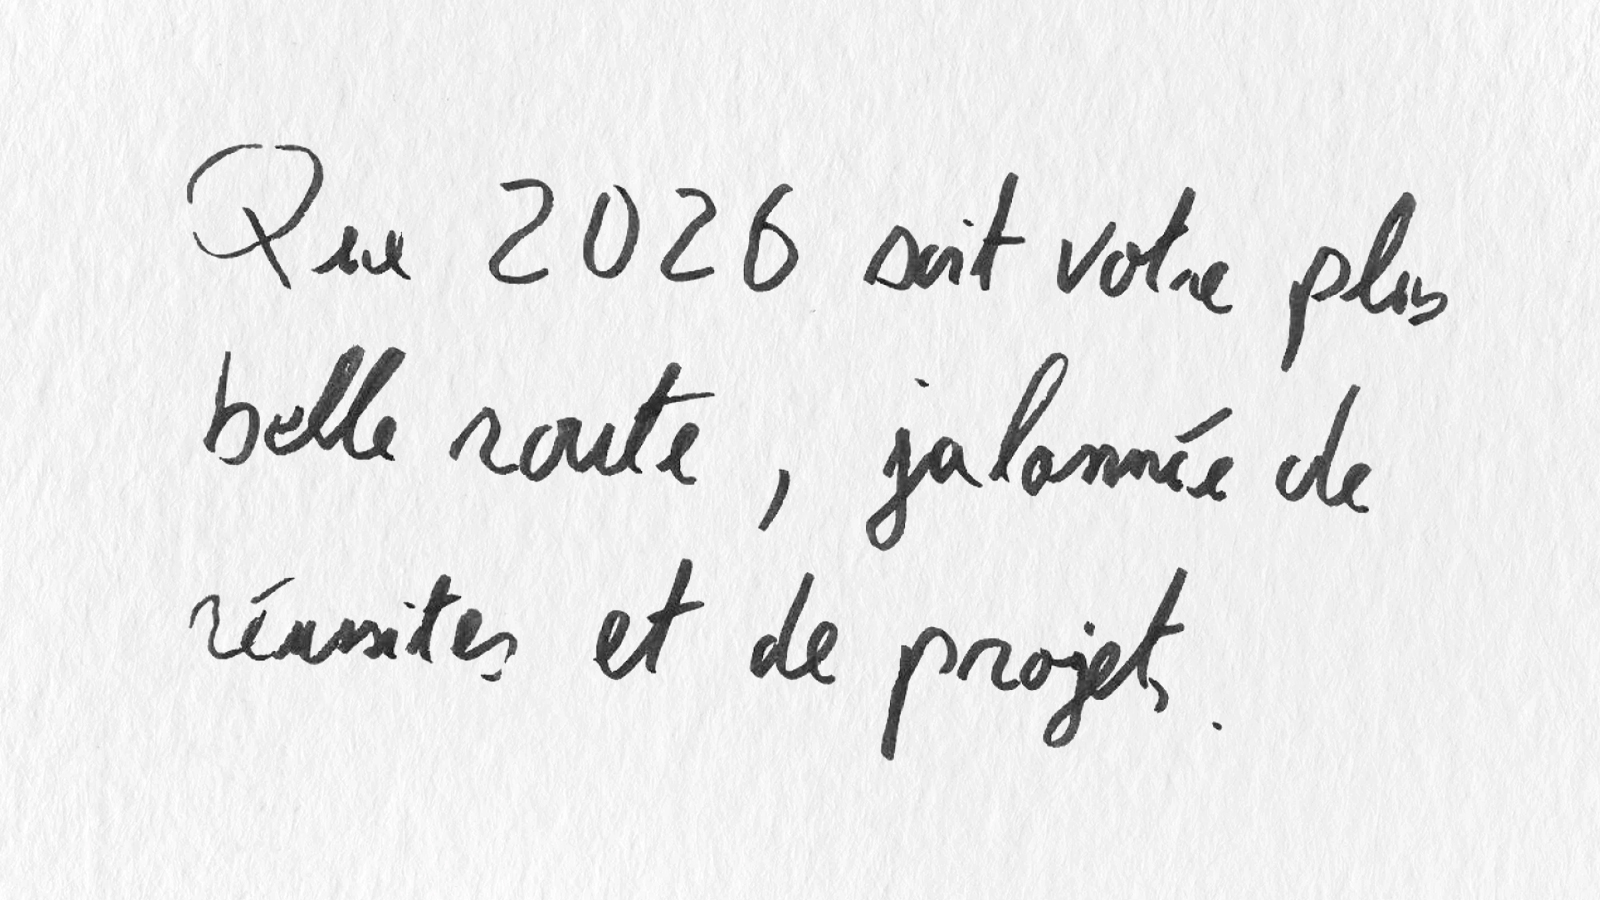 Que 2026 soit votre plus
belle route, jalonnée de
réussites et de projets.